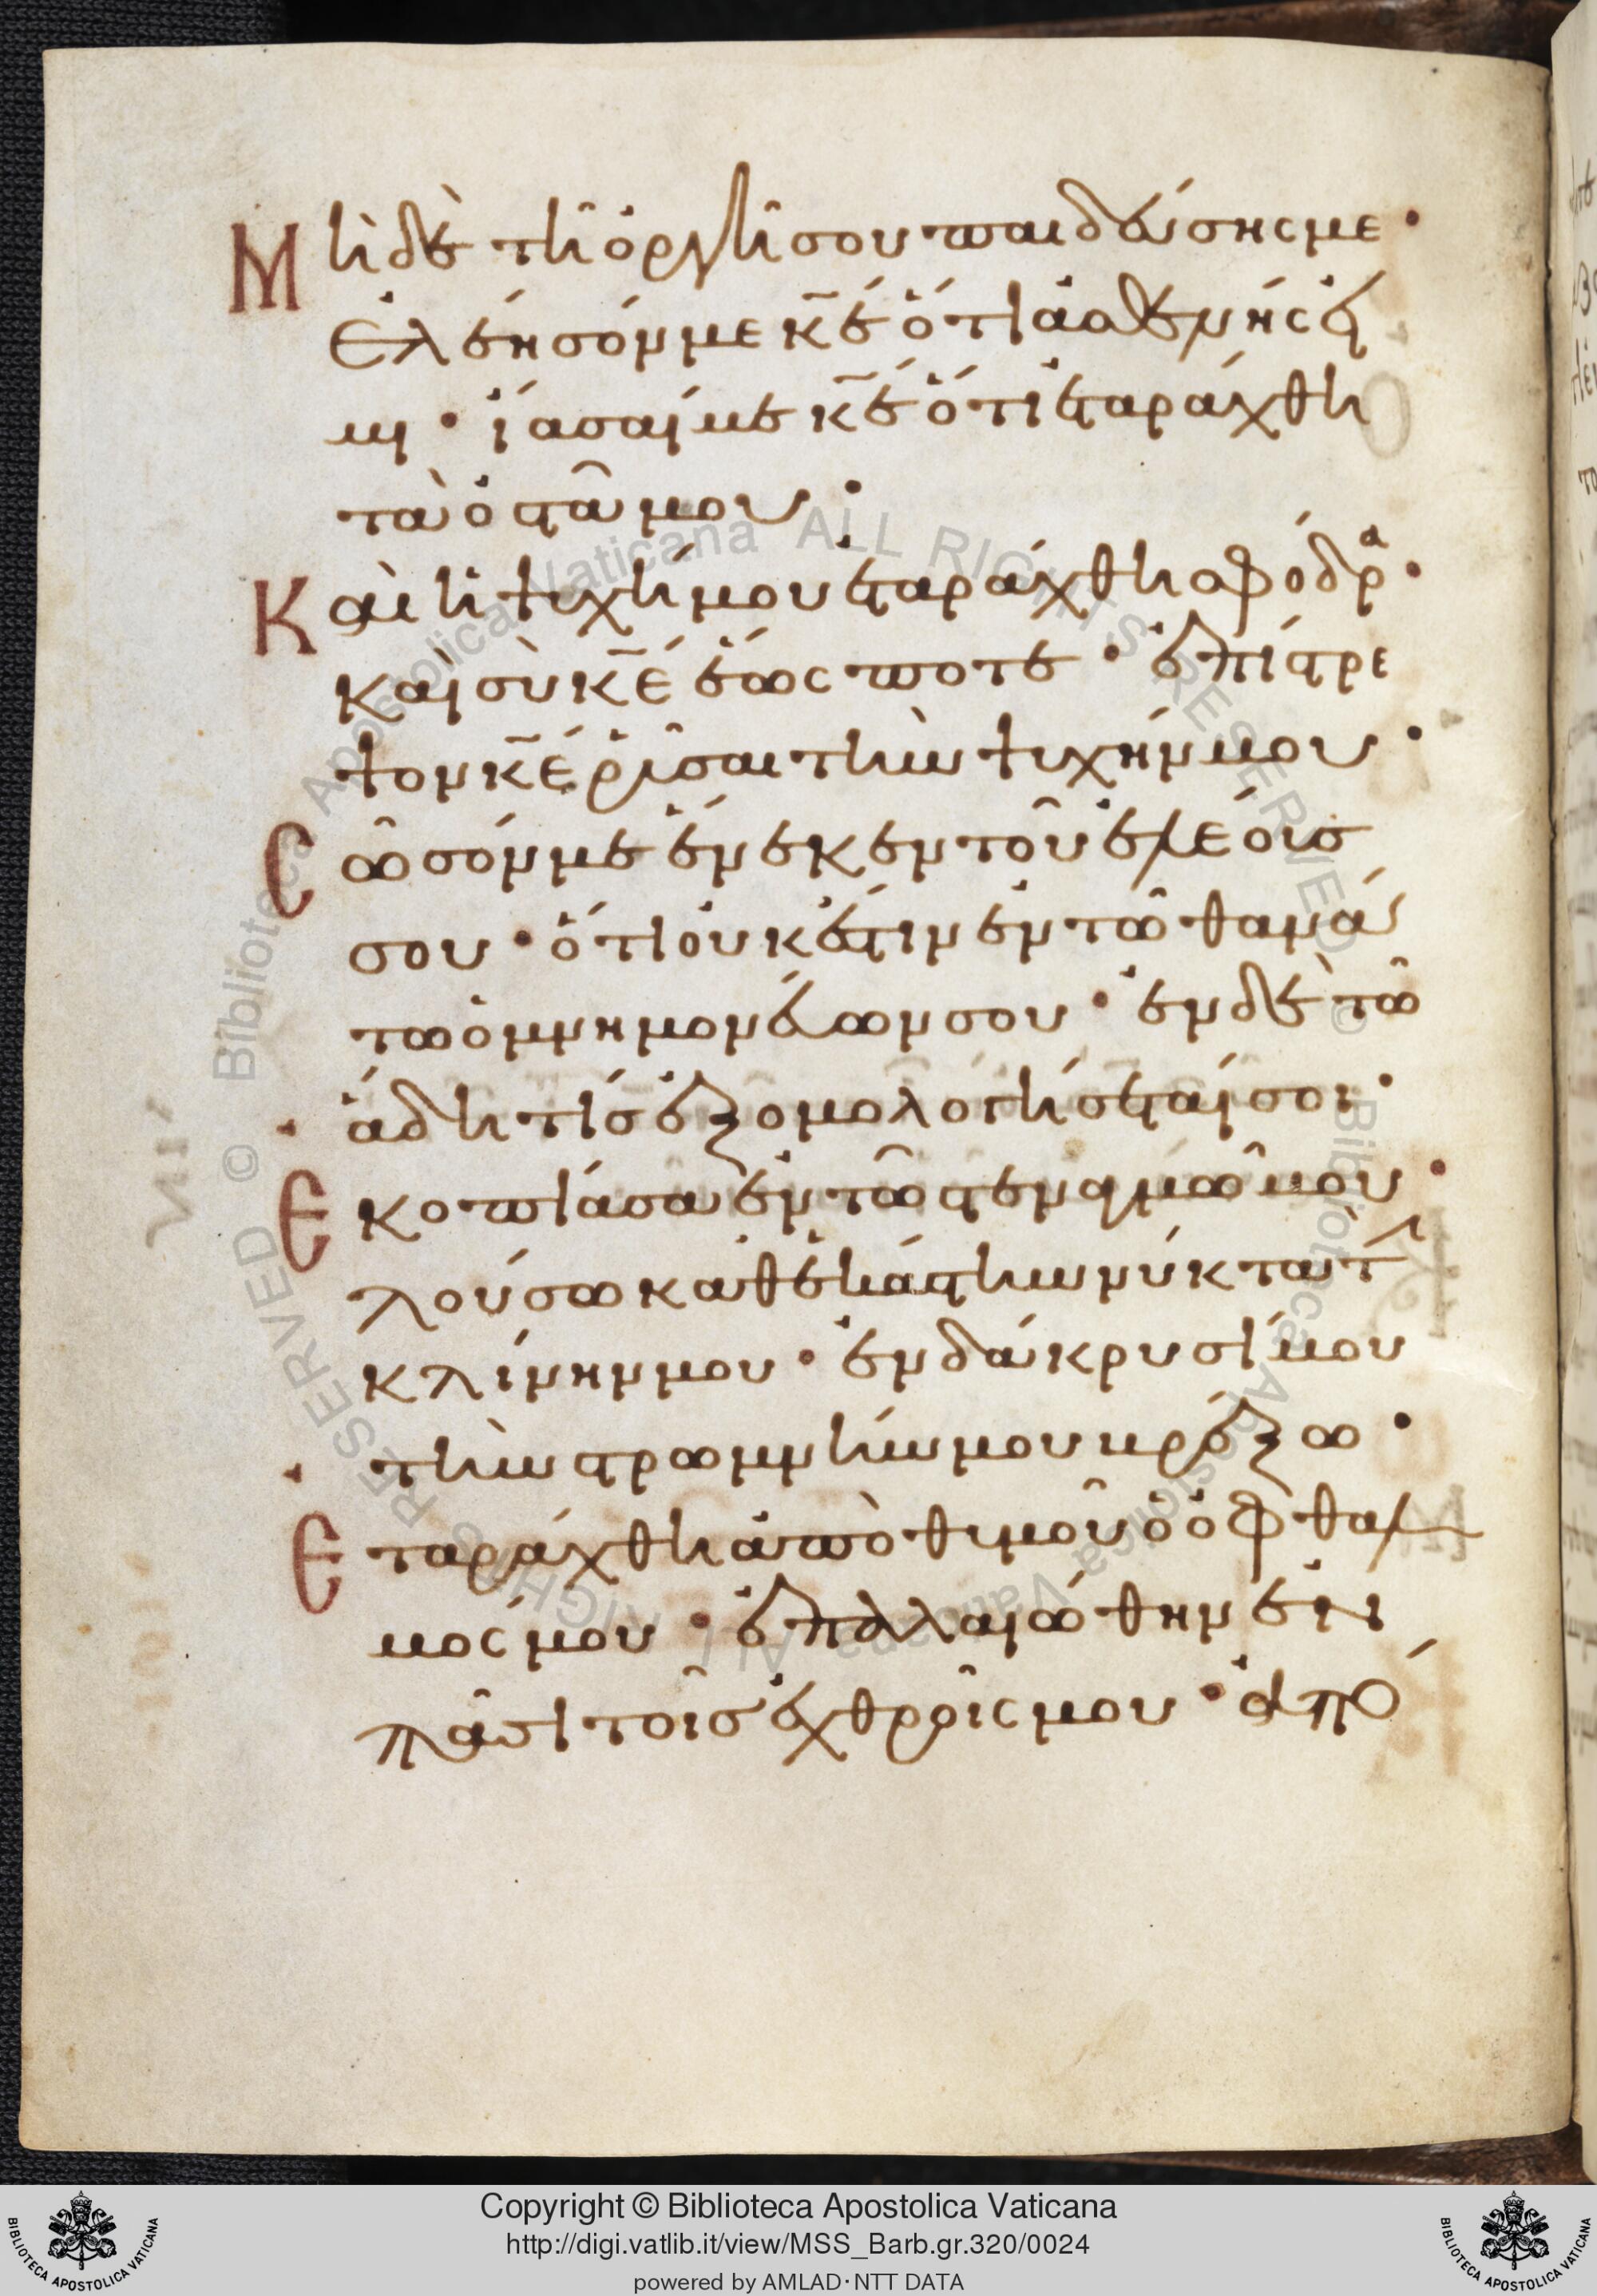 Μὴ δὲ τῆ ὀργῆ σου παιδεύσησ με·
ἐλεησόν με κ̅ε ὅτι ἀσθενής εἰ
μι· ἴασαί με κ̅ε ὅτι ἐταράχθη
τὰ ὀστᾶ μου·
Καὶ ἡ ψυχή μου ἐταράχθη σφόδρα·
καὶ σὺ κ̅ε ἕως ποτε· ἐπίστρε
ψον κ̅ε ῥῦσαι τὴν ψυχήν μου·
Σῶσόν με ἕνεκεν τοῦ ἐλέουσ
σου· ὅτι οὐκ ἔστιν ἐν τῶ θανά
τω ὁ μνημονεύων σου· ἐν δὲ τῶ
ἅδη τίσ ἐξομολογήσεταί σοι·
Εκοπίασα ἐν τῶ στεναγμῶ μου·
λούσω καθεκάστην νύκτα τὴν
κλίνην μου· ἐν δάκρυσί μου
τὴν στρωμνήν μου βρέξω·
Εταράχθη ἀπὸ θυμοῦ ὁ ὀφθαλ
μος μου· ἐπαλαιώθην ἐν
πᾶσι τοῖσ ἐχθροῖς μου· ἀπό
Copyright © Biblioteca Apostolica Vaticana
http://digi.vatlib.it/view/MSS_Barb.gr.320/0024
powered by AMLAD·NTT DATA